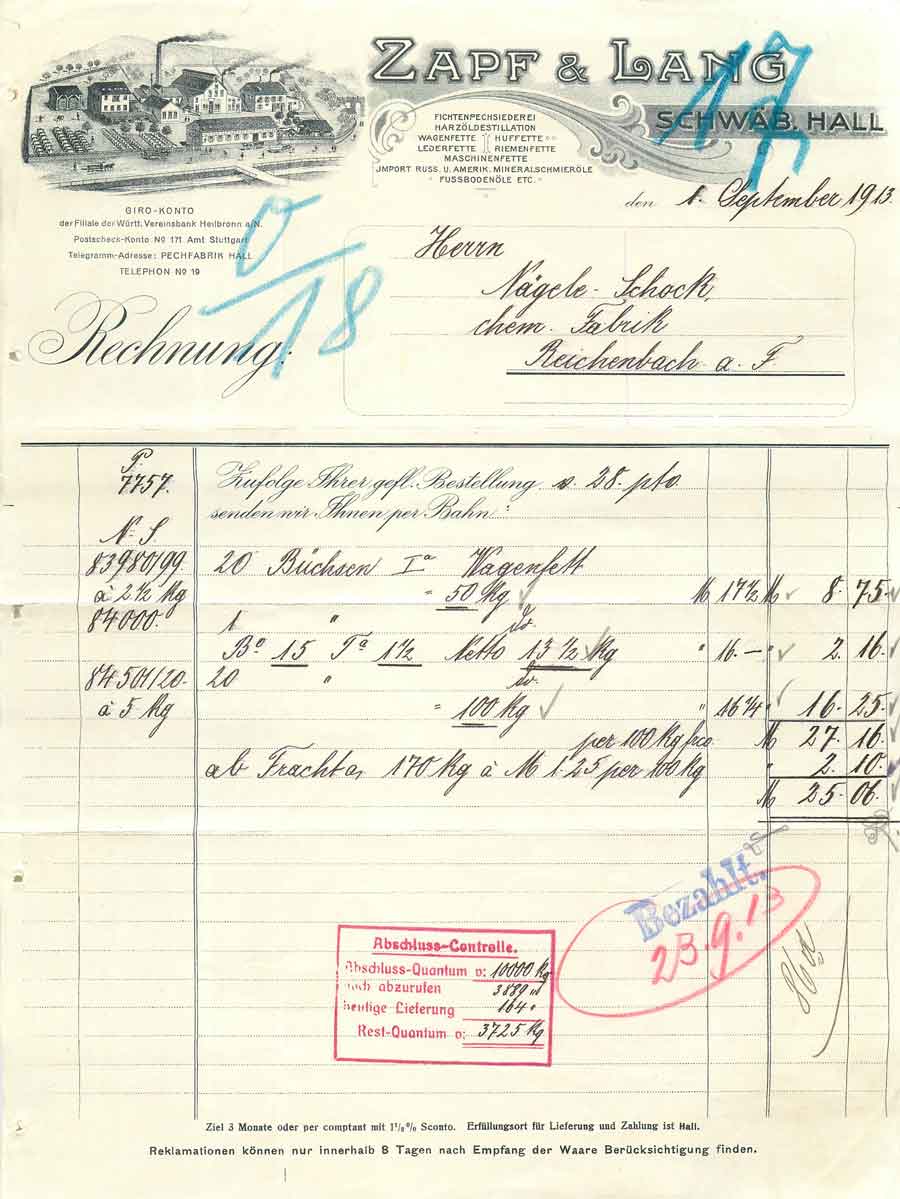 ZAPF & LANG
SCHWÄB. HALL
17
FICHTENPECHSIEDEREI
HARZÖLDESTILLATION
WAGENFETTE HUFFETTE
LEDERFETTE RIEMENFETTE
MASCHINENFETTE
JMPORT RUSS. U. AMERIK. MINERALSCHMIERÖLE
FUSSBODENÖLE ETC.
den 1. September 1913.
GIRO-KONTO
der Filiale der Württ. Vereinsbank Heilbronn a/N.
Postscheck-Konto No 171 Amt Stuttgart
Telegramm-Adresse: PECHFABRIK HALL
TELEPHON No 19
0/18
Rechnung:
Herrn
Nägele-Schock,
chem. Fabrik
Reichenbach a. F.
P.
7757.
Zufolge Ihrer gefl. Bestellung v. 28. pto.
senden wir Ihnen per Bahn:
N. S.
83980/99 20 Büchsen Ia Wagenfett
à 2½ Kg = 50 Kg M 17½ M 8. 75.
84000. 1 " do.
Bo 15 Ta 1½ Netto 13½ Kg " 16.— " 2. 16.
84501/20. 20 " do.
à 5 Kg = 100 Kg " 16¼ " 16. 25.
per 100 Kg fco. M 27. 16.
ab Fracht a, 170 Kg à M 1.25 per 100 Kg " 2. 10.
M 25. 06.
Bezahlt.
23.9.13
Abschluss-Controlle.
Abschluss-Quantum v: 10000 Kg
noch abzurufen 3889 "
heutige Lieferung 164 "
Rest-Quantum v: 3725 Kg
Ziel 3 Monate oder per comptant mit 1½% Sconto. Erfüllungsort für Lieferung und Zahlung ist Hall.
Reklamationen können nur innerhalb 8 Tagen nach Empfang der Waare Berücksichtigung finden.